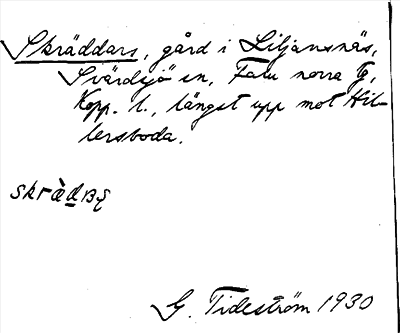 Skräddars, gård i Liljansnäs,
Svärdsjö sn, Falu norra tg,
Kopp. l., längst upp mot Hil-
lersboda.
skrädas
G. Tideström 1930